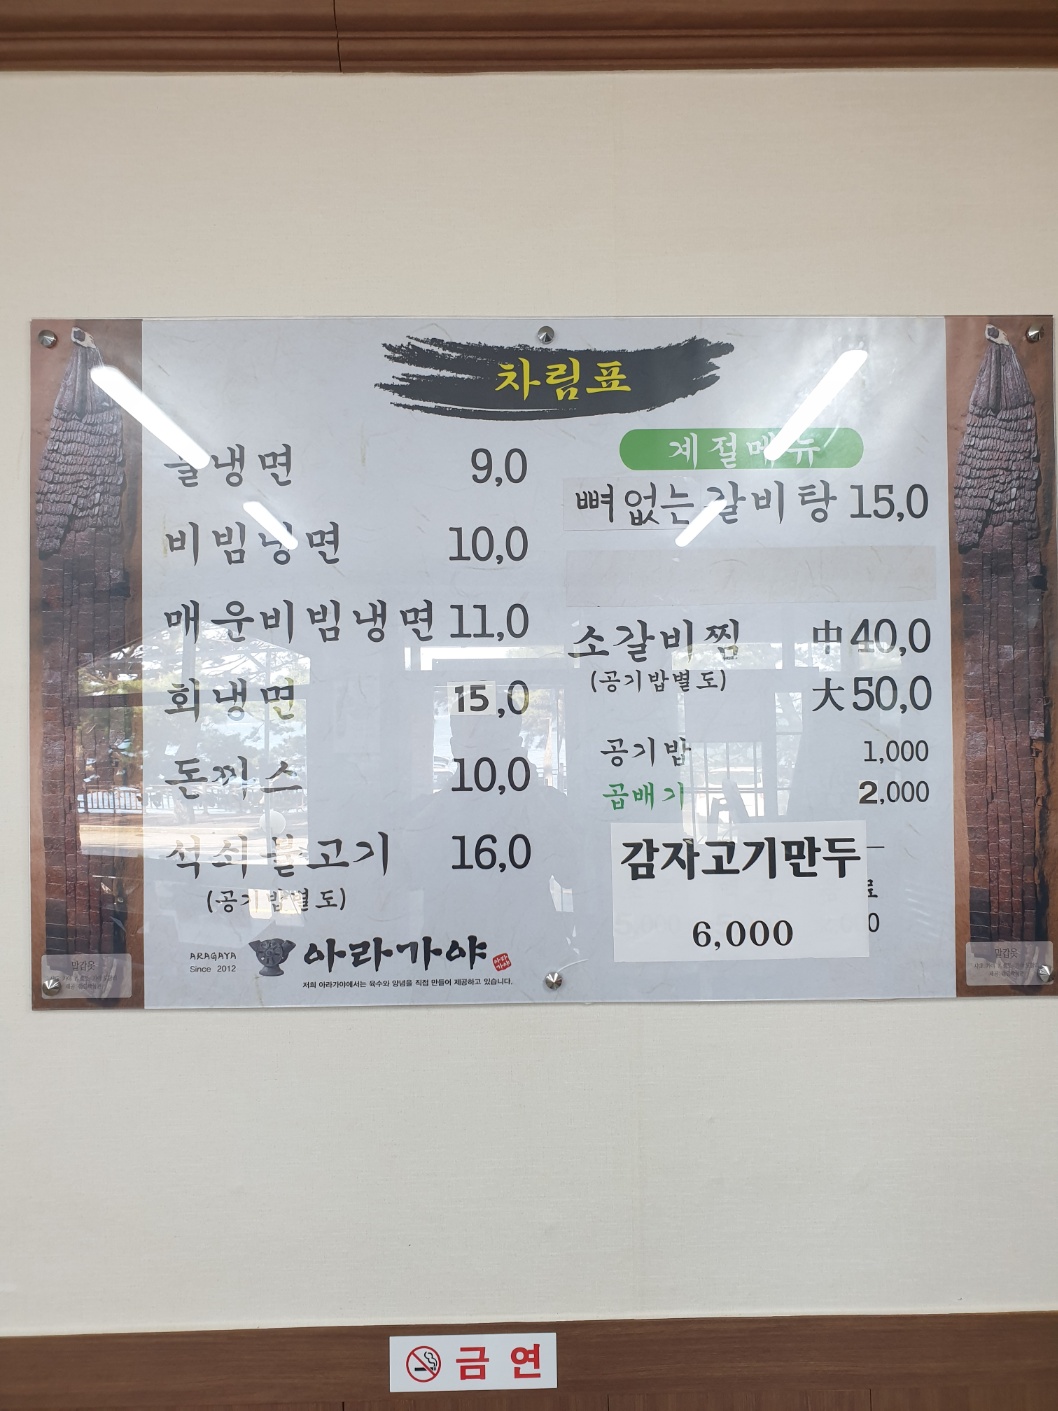 차림표
물냉면 9,0
비빔냉면 10,0
매운비빔냉면 11,0
회냉면 15,0
돈까스 10,0
석쇠불고기 16,0
(공기밥별도)
ARAGAYA
Since 2012
아라가야
아라가야
저희 아라가야에서는 육수와 양념을 직접 만들어 제공하고 있습니다.
계절메뉴
뼈없는갈비탕 15,0
소갈비찜 中40,0
(공기밥별도) 大50,0
공기밥 1,000
곱배기 2,000
감자고기만두
6,000
료
0
말갑옷
말갑옷
금연